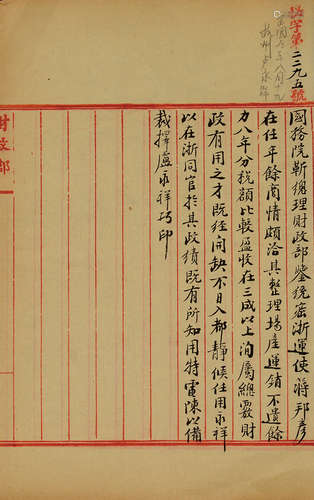 秘字第二二九五號
國務院靳總理財政部鑒統密浙運使蔣邦彥
在任年餘商情頗洽其整理場産運銷不遺餘
力八年分稅額比較盈收在三成以上洵屬總覈財
政有用之才既經開缺不日入都靜候任用永祥
以在浙同官於其政績既有所知用特電陳以備
裁擇盧永祥巧印
財政部